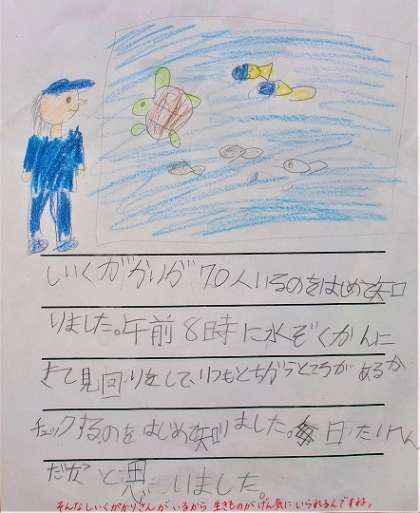 しいくがかりが70人いるのをはじめて知
りました。午前8時に水ぞくかんに
きて見回りをして、いつもとちがうところがあるか
チェックするのをはじめて知りました。毎日たいへん
だなと思いました。
そんなしいくがかりさんがいるから生きものがげん気にいられるんですね。